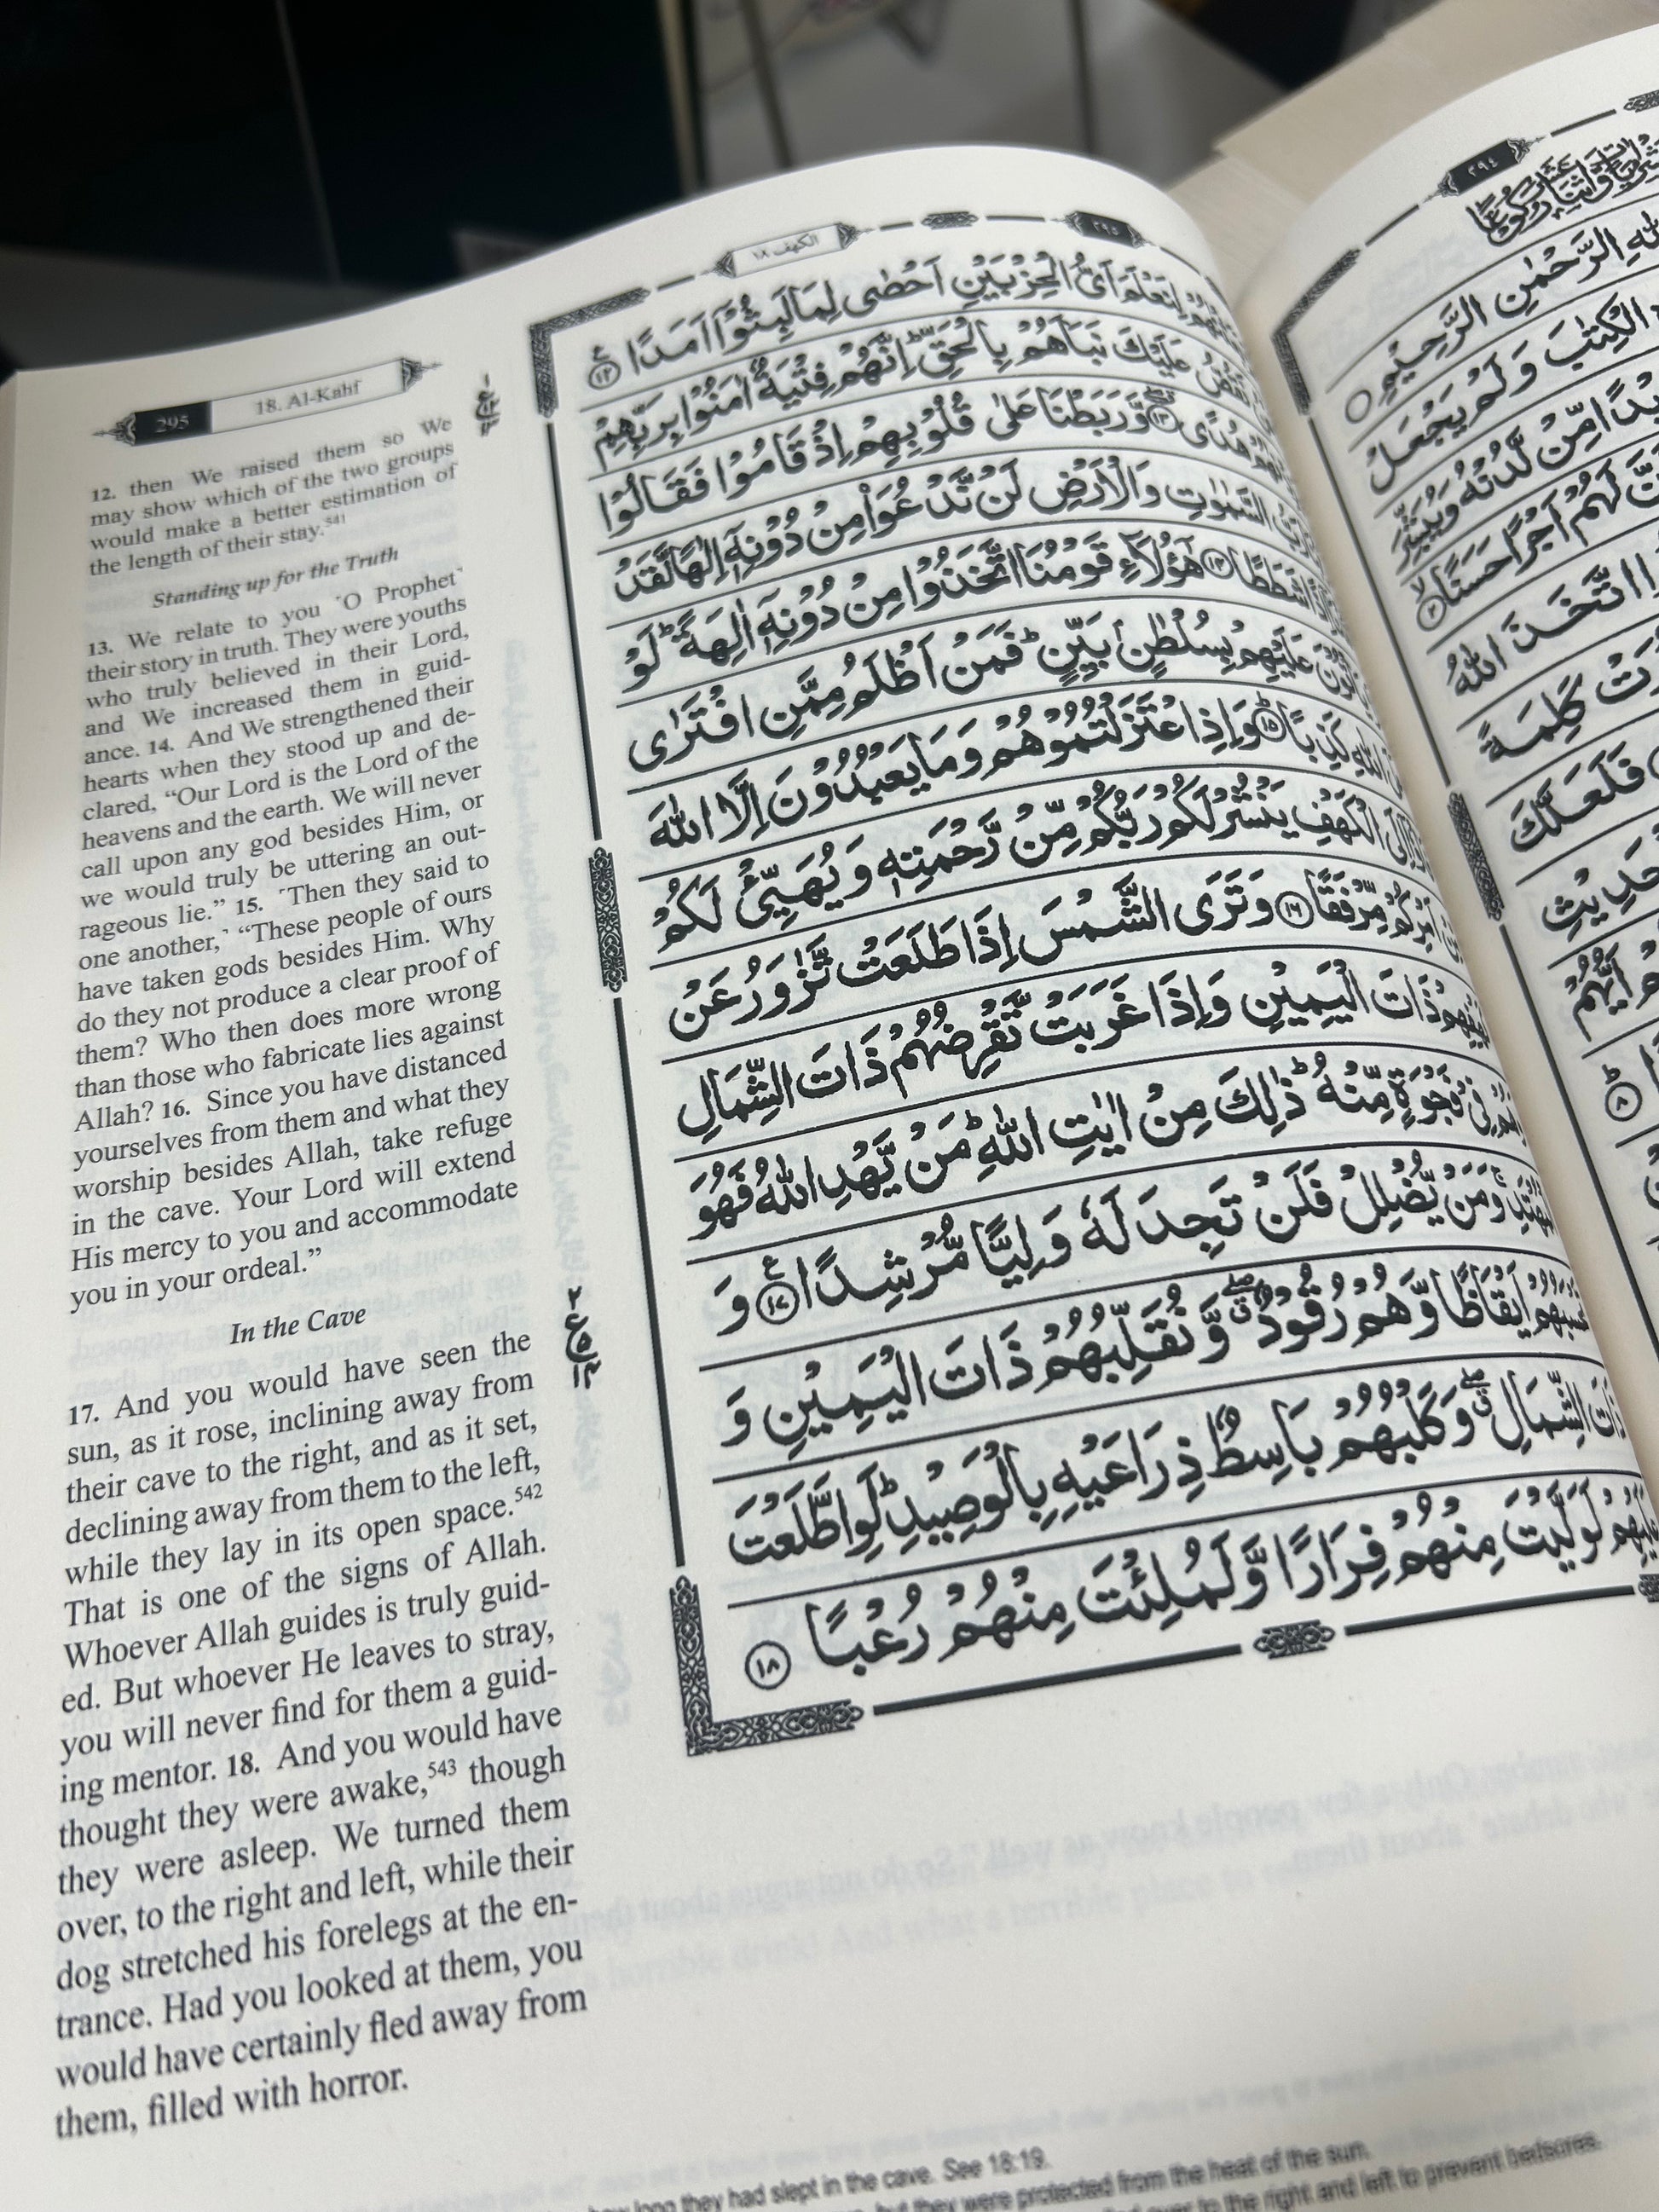 295 18. Al-Kahf
12. then We raised them so We
may show which of the two groups
would make a better estimation of
the length of their stay.541
Standing up for the Truth
13. We relate to you ˹O Prophet˺
their story in truth. They were youths
who truly believed in their Lord,
and We increased them in guid-
ance. 14. And We strengthened their
hearts when they stood up and de-
clared, “Our Lord is the Lord of the
heavens and the earth. We will never
call upon any god besides Him, or
we would truly be uttering an out-
rageous lie.” 15. ˹Then they said to
one another,˺ “These people of ours
have taken gods besides Him. Why
do they not produce a clear proof of
them? Who then does more wrong
than those who fabricate lies against
Allah? 16. Since you have distanced
yourselves from them and what they
worship besides Allah, take refuge
in the cave. Your Lord will extend
His mercy to you and accommodate
you in your ordeal.”
In the Cave
17. And you would have seen the
sun, as it rose, inclining away from
their cave to the right, and as it set,
declining away from them to the left,
while they lay in its open space.542
That is one of the signs of Allah.
Whoever Allah guides is truly guid-
ed. But whoever He leaves to stray,
you will never find for them a guid-
ing mentor. 18. And you would have
thought they were awake,543 though
they were asleep. We turned them
over, to the right and left, while their
dog stretched his forelegs at the en-
trance. Had you looked at them, you
would have certainly fled away from
them, filled with horror.
how long they had slept in the cave. See 18:19.
but they were protected from the heat of the sun.
over to the right and left to prevent bedsores.
الكهف ١٨ ٢٩٥
لِنَعْلَمَ اَىُّ الْحِزْبَيْنِ اَحْصٰى لِمَا لَبِثُوْۤا اَمَدًا ١٢
نَقُصُّ عَلَيْكَ نَبَاَهُمْ بِالْحَقِّ ؕ اِنَّهُمْ فِتْيَةٌ اٰمَنُوْا بِرَبِّهِمْ
هُدًى ١٣ وَّرَبَطْنَا عَلٰى قُلُوْبِهِمْ اِذْ قَامُوْا فَقَالُوْا
رَبُّ السَّمٰوٰتِ وَالْاَرْضِ لَنْ نَّدْعُوَا۟ مِنْ دُوْنِهٖۤ اِلٰهًا لَّقَدْ
اِذًا شَطَطًا ١٤ هٰۤؤُلَآءِ قَوْمُنَا اتَّخَذُوْا مِنْ دُوْنِهٖۤ اٰلِهَةً ؕ لَوْ
عَلَيْهِمْ بِسُلْطٰنٍۭ بَيِّنٍ ؕ فَمَنْ اَظْلَمُ مِمَّنِ افْتَرٰى
اللّٰهِ كَذِبًا ١٥ وَاِذِ اعْتَزَلْتُمُوْهُمْ وَمَا يَعْبُدُوْنَ اِلَّا اللّٰهَ
اِلَى الْكَهْفِ يَنْشُرْ لَكُمْ رَبُّكُمْ مِّنْ رَّحْمَتِهٖ وَيُهَيِّئْ لَكُمْ
اَمْرِكُمْ مِّرْفَقًا ١٦ وَتَرَى الشَّمْسَ اِذَا طَلَعَتْ تَّزٰوَرُ عَنْ
ذَاتَ الْيَمِيْنِ وَاِذَا غَرَبَتْ تَّقْرِضُهُمْ ذَاتَ الشِّمَالِ
فِىْ فَجْوَةٍ مِّنْهُ ؕ ذٰلِكَ مِنْ اٰيٰتِ اللّٰهِ ؕ مَنْ يَّهْدِ اللّٰهُ فَهُوَ
الْمُهْتَدِ ۚ وَمَنْ يُّضْلِلْ فَلَنْ تَجِدَ لَهٗ وَلِيًّا مُّرْشِدًا ١٧ وَ
اَيْقَاظًا وَّهُمْ رُقُوْدٌ ۖ وَّنُقَلِّبُهُمْ ذَاتَ الْيَمِيْنِ وَ
ذَاتَ الشِّمَالِ ۖ وَكَلْبُهُمْ بَاسِطٌ ذِرَاعَيْهِ بِالْوَصِيْدِ ؕ لَوِ اطَّلَعْتَ
عَلَيْهِمْ لَوَلَّيْتَ مِنْهُمْ فِرَارًا وَّلَمُلِئْتَ مِنْهُمْ رُعْبًا ١٨
٢٩٤
الرَّحْمٰنِ الرَّحِيْمِ
الْكِتٰبَ وَلَمْ يَجْعَلْ
مِّنْ لَّدُنْهُ وَيُبَشِّرَ
لَهُمْ اَجْرًا حَسَنًا ٢
اتَّخَذَ اللّٰهُ
كَلِمَةً
فَلَعَلَّكَ
اَيُّهُمْ
٨